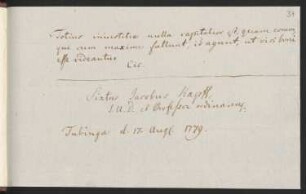 Totius injustitiae nulla capitalior est, quam eorum,
qui cum maxime fallunt, id agunt, ut viri boni
esse videantur
Cic.
Sixtus Jacobus Kapff,
I.U.D. et Professor ordinarius,
Tubinga d. 17. Aug. 1779.